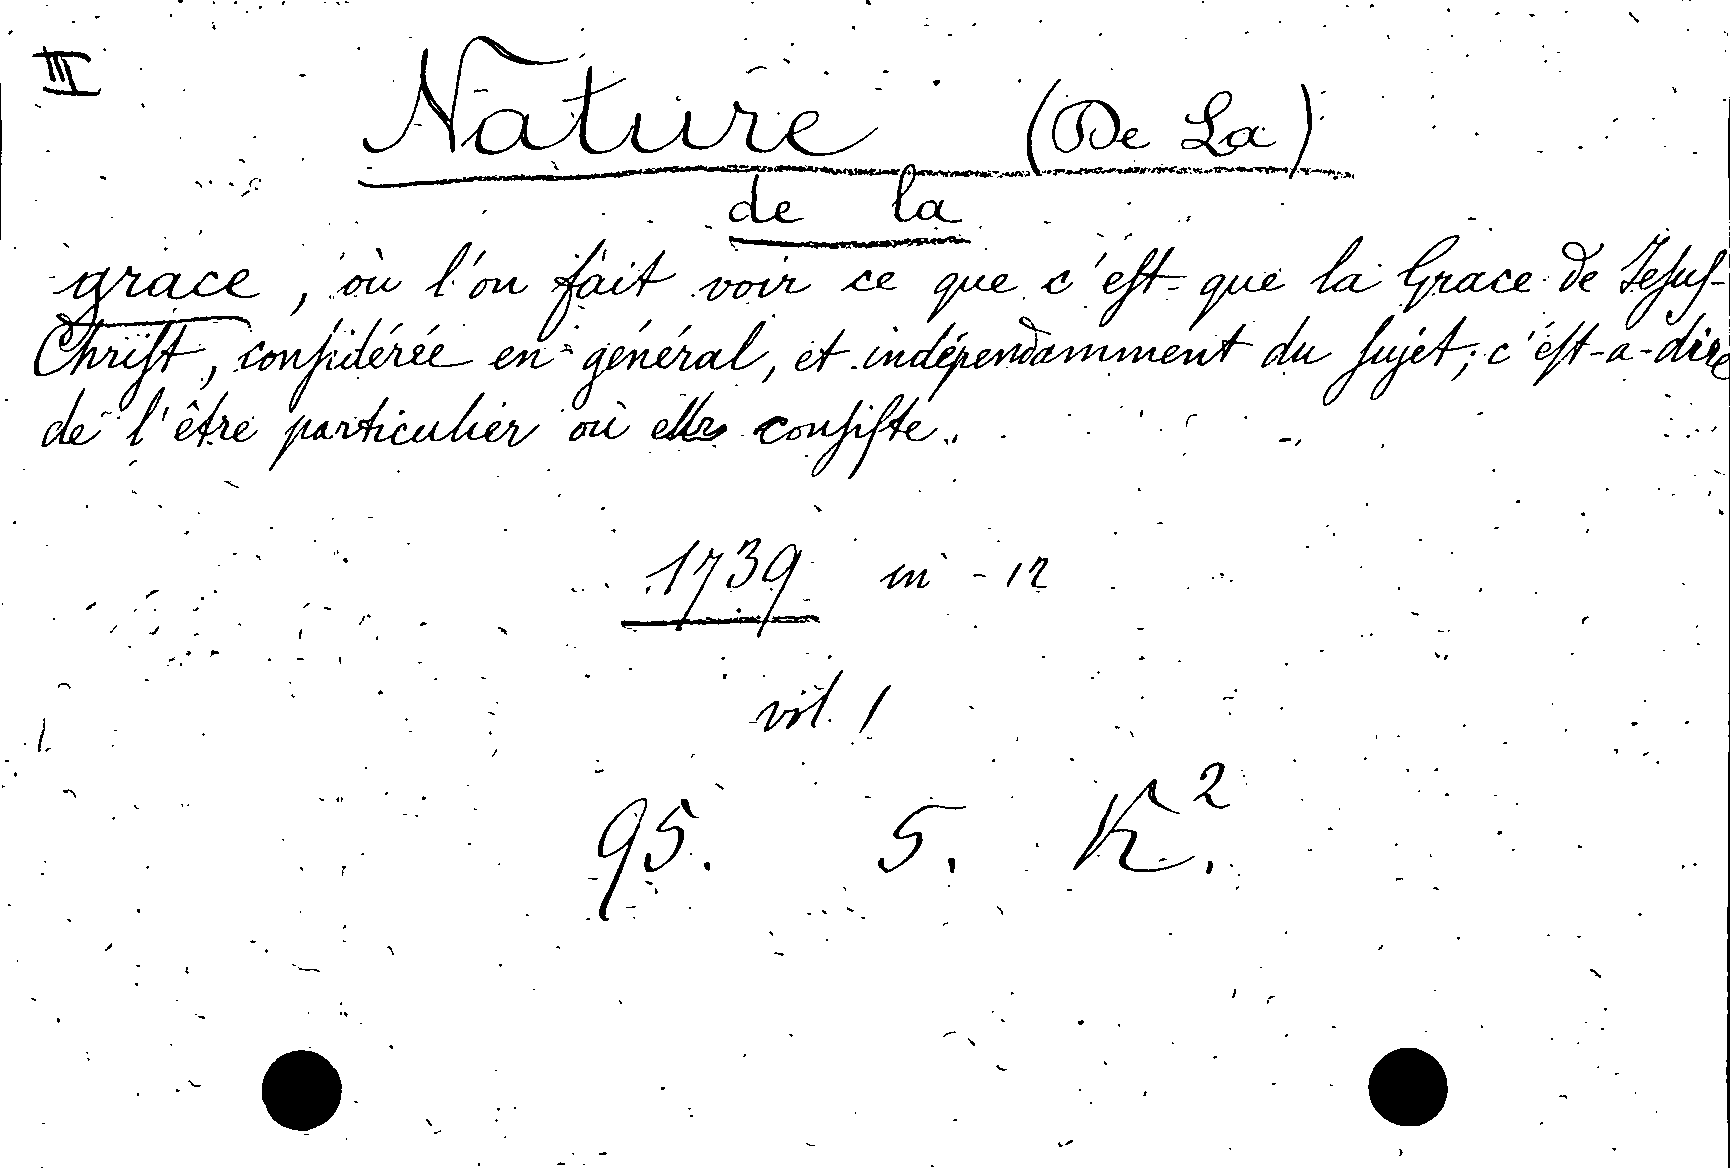 III
Nature (De La)
de la
grace, où l'on fait voir ce que c'eſt que la Grace de Jeſuſ-
Chriſt, conſidérée en général, et indépendamment du ſujet; c'éſt-a-dire
de l'être particulier où elle conſiſte.
1739 in-12
vol. 1
95. 5. K².